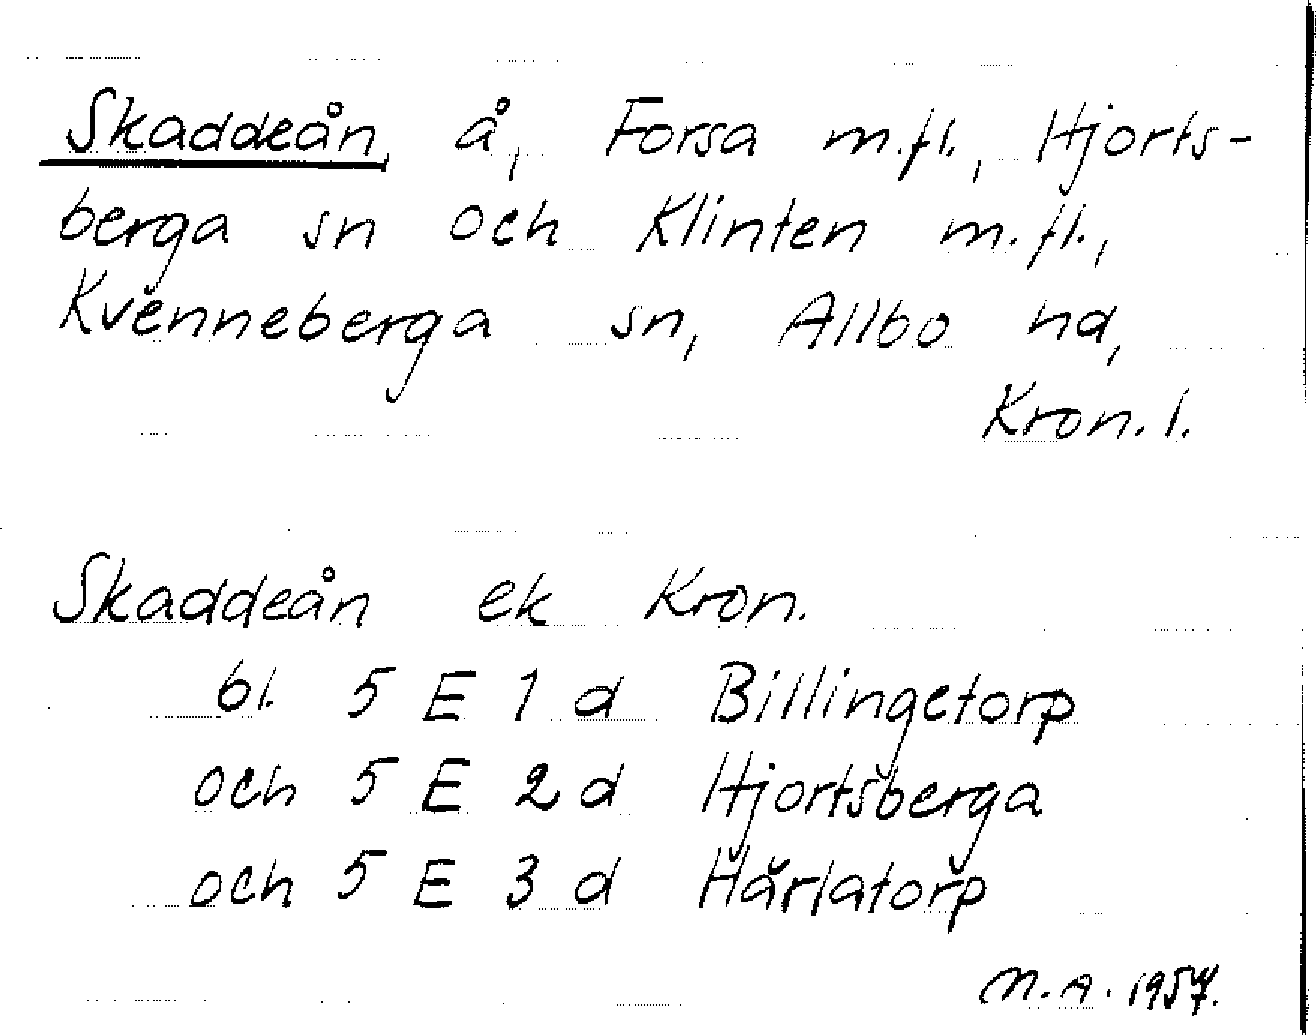 Skaddeån, å, Forsa m.fl., Hjorts-
berga sn och Klinten m.fl.,
Kvenneberga sn, Allbo hd,
Kron. l.
Skaddeån ek Kron.
bl. 5 E 1 d Billingetorp
och 5 E 2 d Hjortsberga
och 5 E 3 d Härlatorp
M.A. 1957.